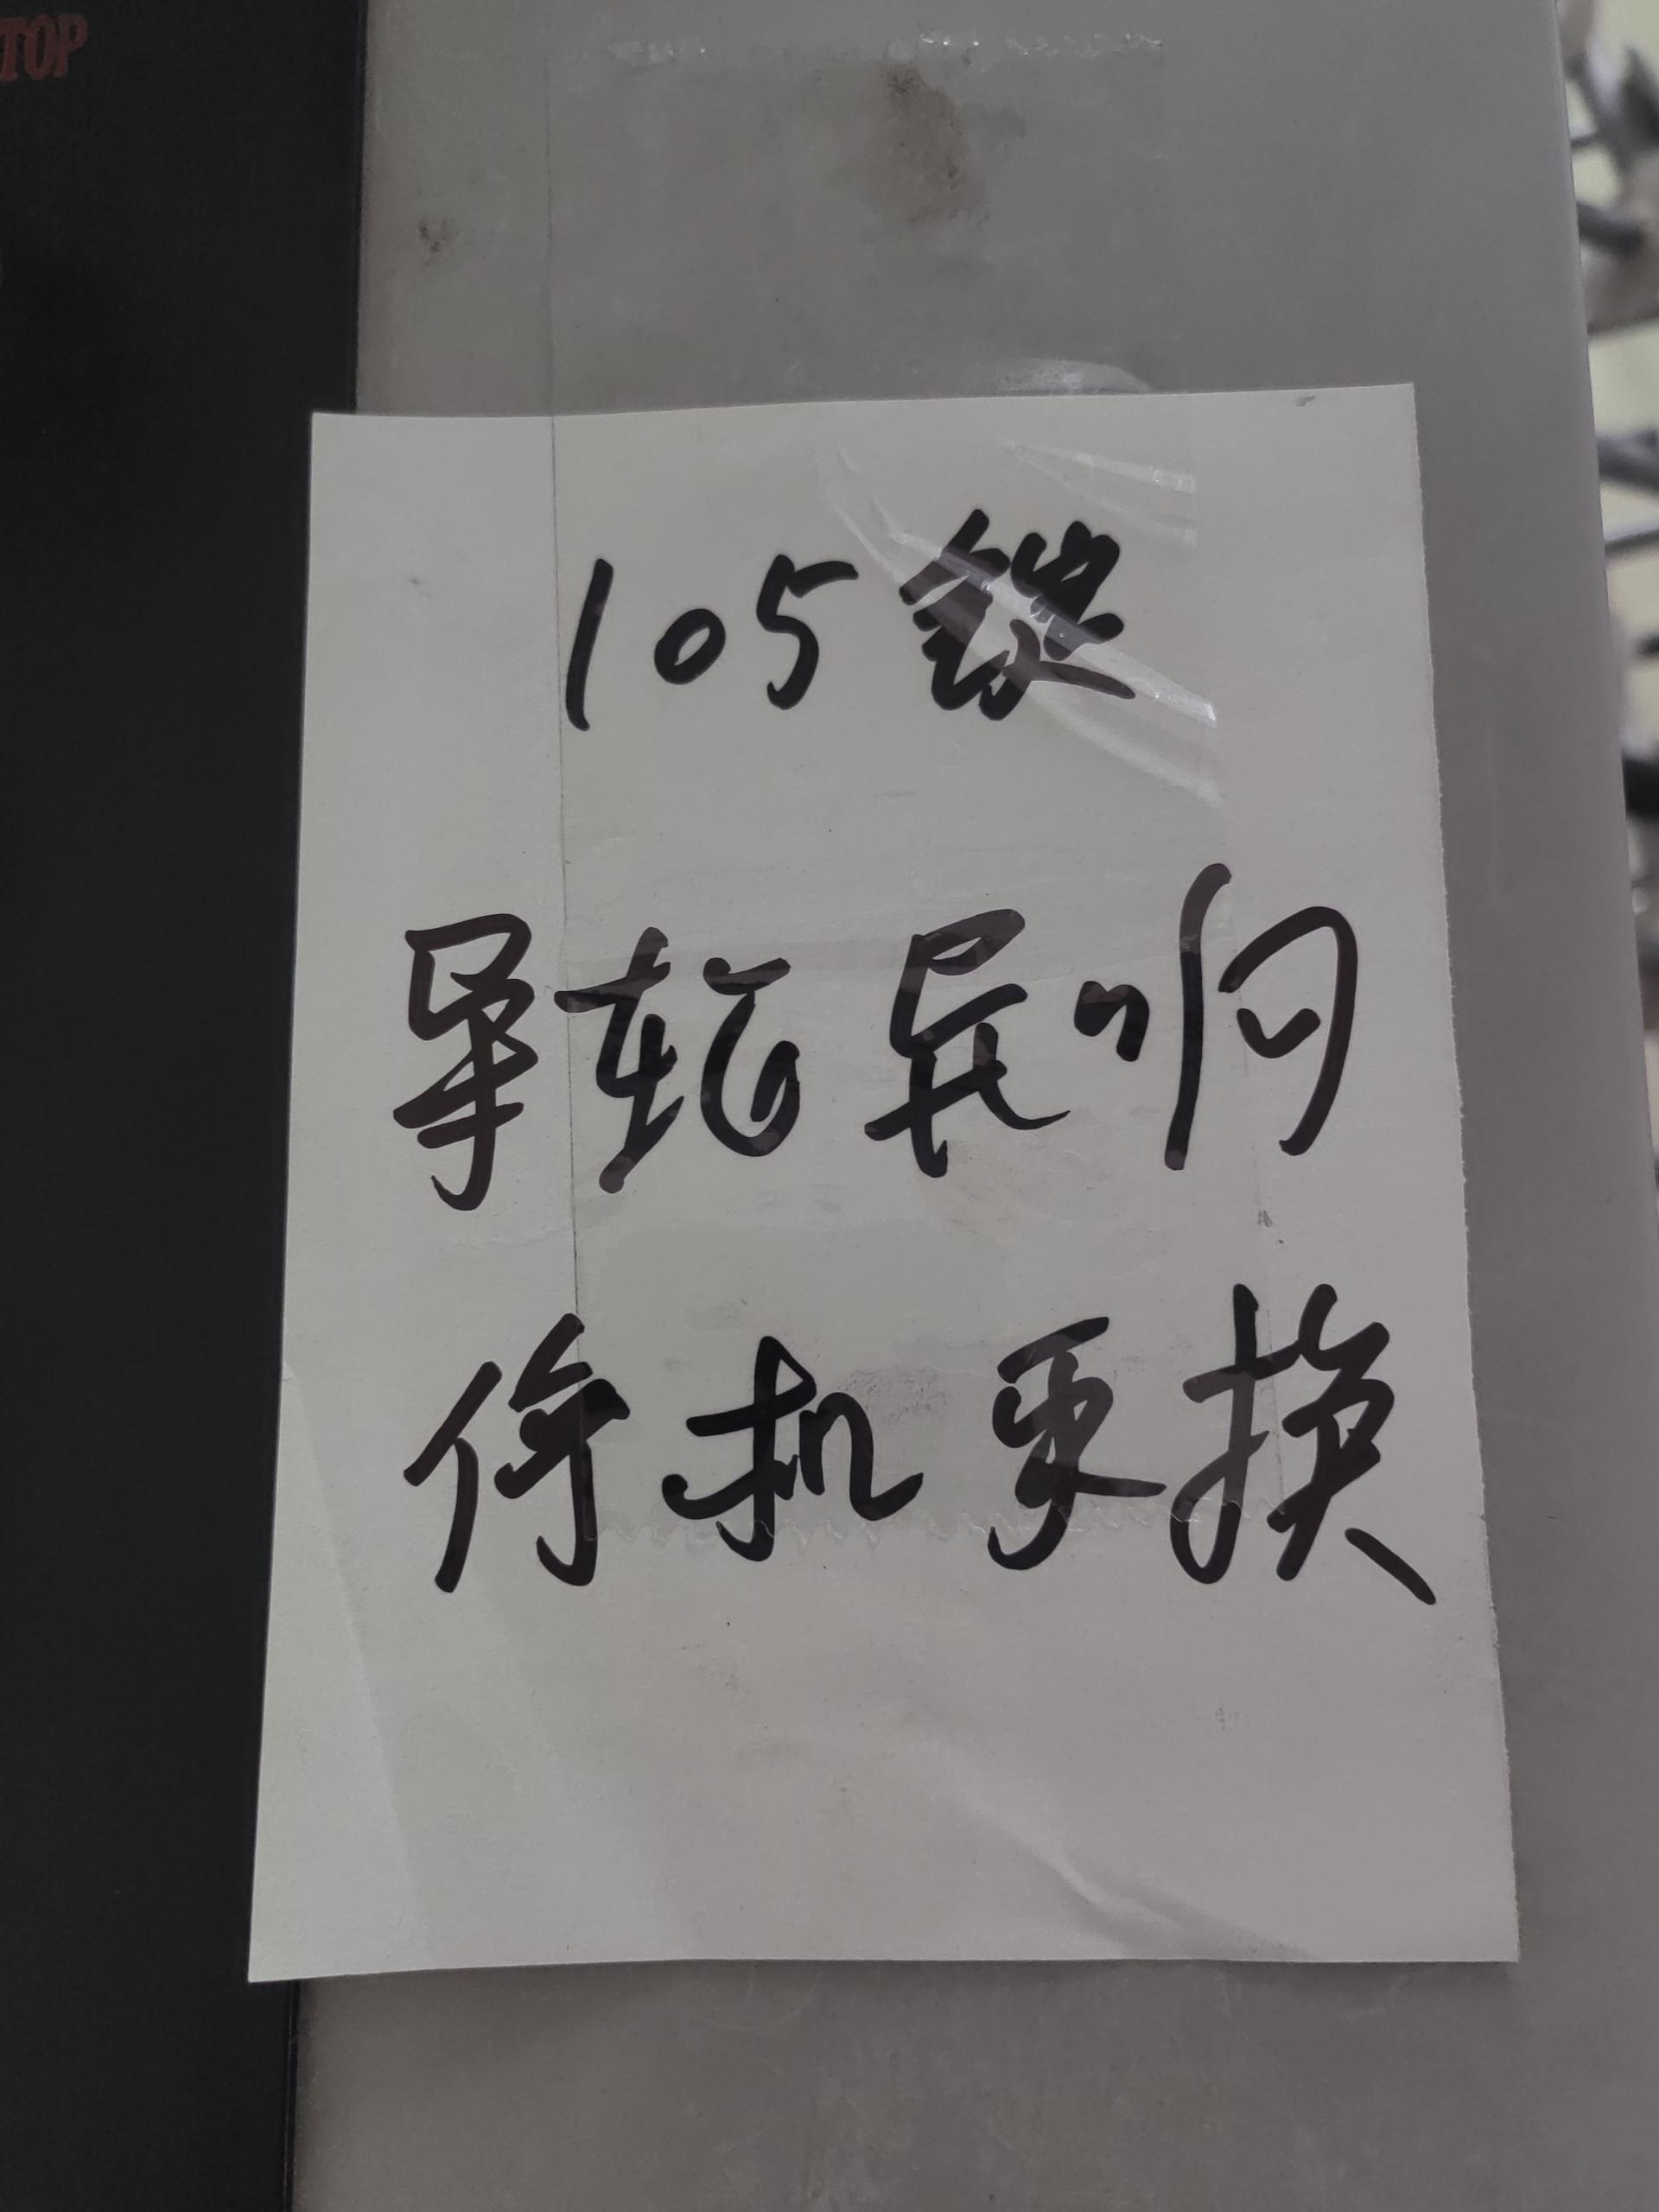 TOP
105锭
导轮异响
停机更换